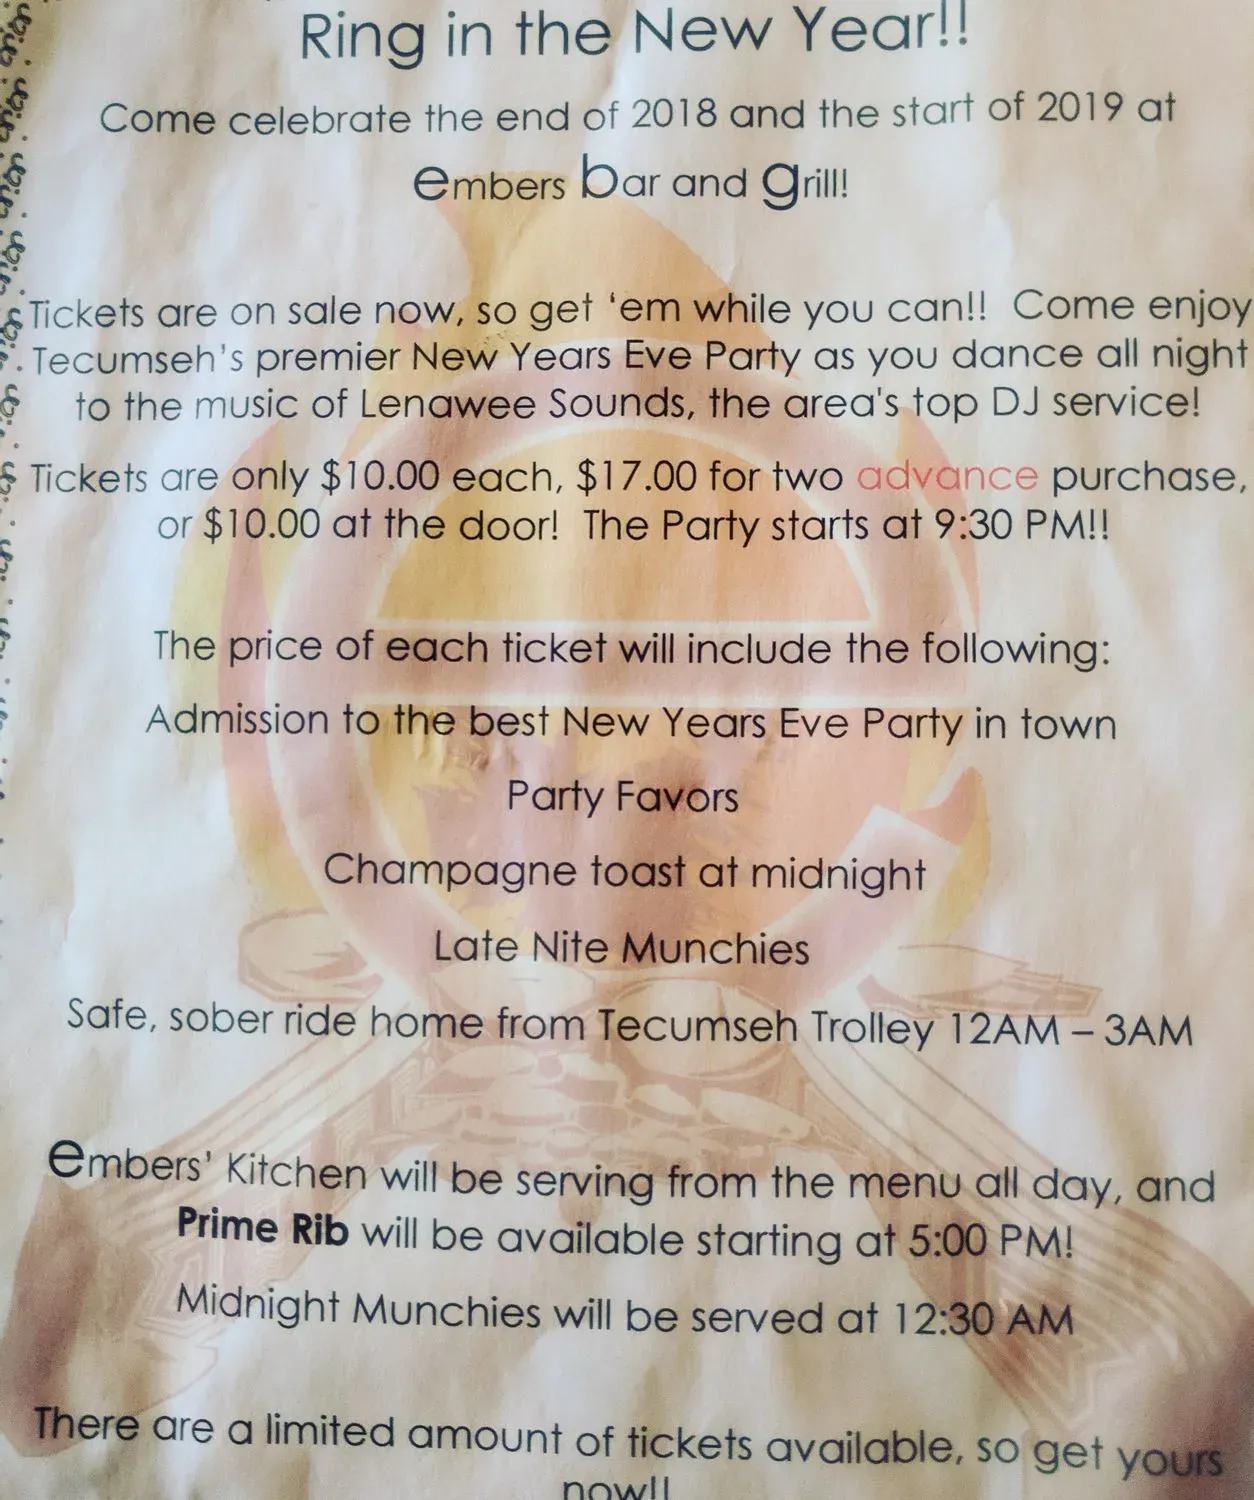 Ring in the New Year!!
Come celebrate the end of 2018 and the start of 2019 at
embers bar and grill!
Tickets are on sale now, so get 'em while you can!! Come enjoy
Tecumseh's premier New Years Eve Party as you dance all night
to the music of Lenawee Sounds, the area's top DJ service!
Tickets are only $10.00 each, $17.00 for two advance purchase,
or $10.00 at the door! The Party starts at 9:30 PM!!
The price of each ticket will include the following:
Admission to the best New Years Eve Party in town
Party Favors
Champagne toast at midnight
Late Nite Munchies
Safe, sober ride home from Tecumseh Trolley 12AM – 3AM
embers' Kitchen will be serving from the menu all day, and
Prime Rib will be available starting at 5:00 PM!
Midnight Munchies will be served at 12:30 AM
There are a limited amount of tickets available, so get yours
now!!